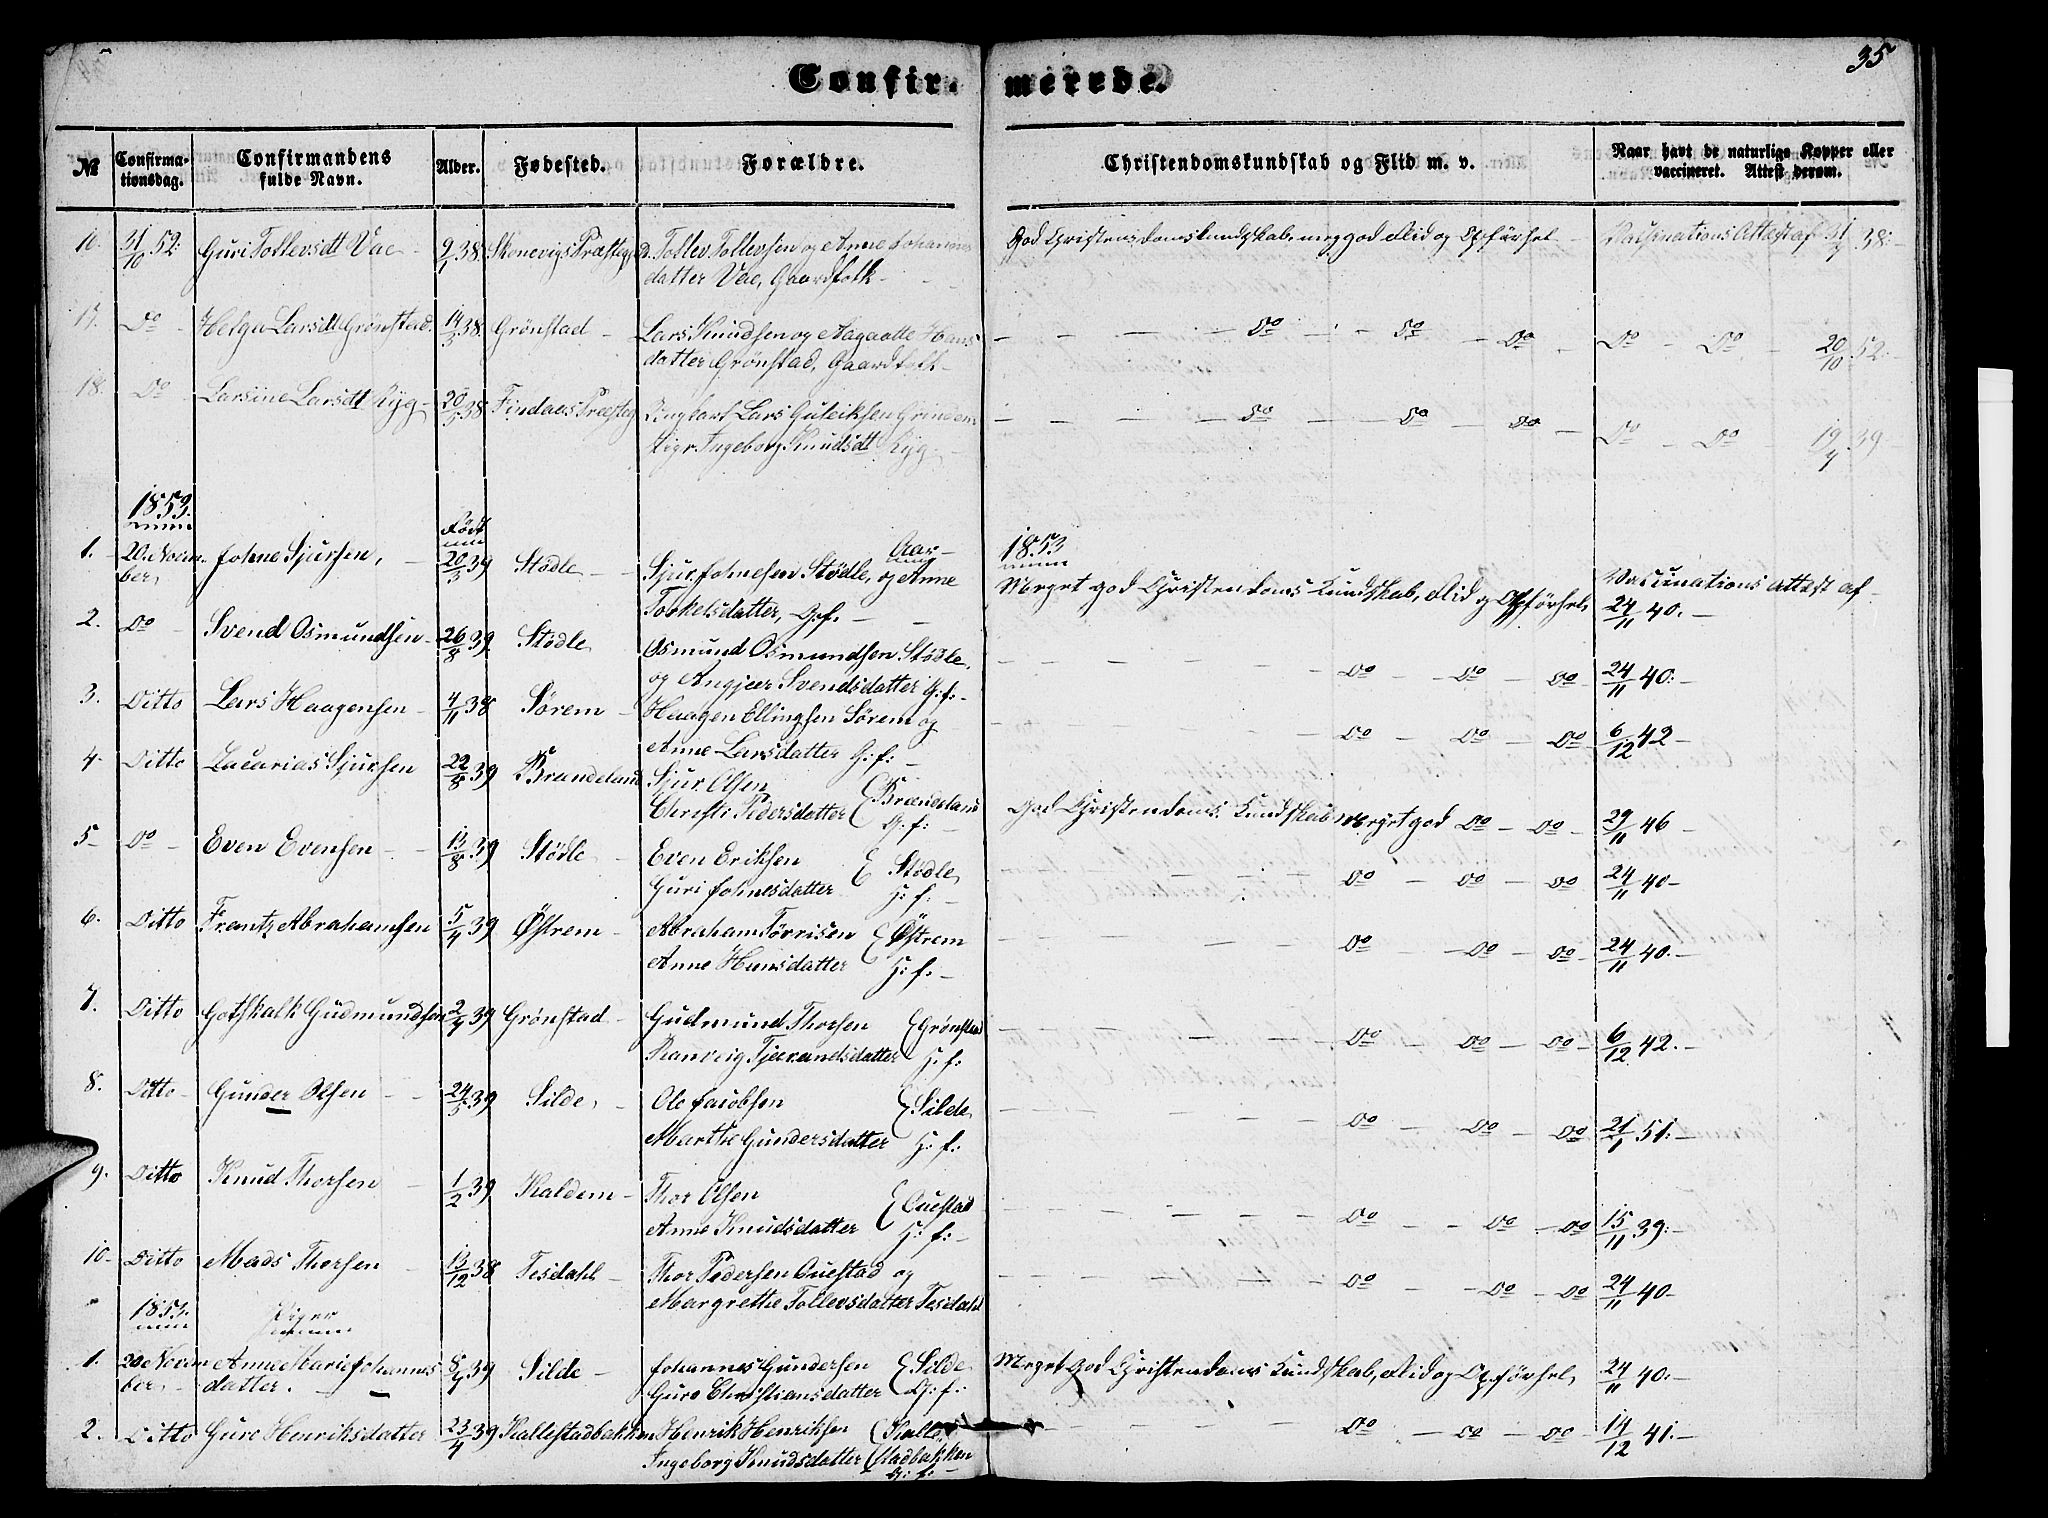 35
Confir- merede.
№ Confirma-tionsdag. Confirmandens fulde Navn. Alder. Fødested. Forældre. Christendomskundskab og Flid m. v. Naar havt de naturlige Kopper eller vaccineret. Attest derom.
16. 31/10 52: Guri Tollevsdt Vae 9/1 38. Skonevigs Præstegd. Tollev Tollevsen og Anne Johannes God Christendomskundskab, meg god Flid og Opførsel Vaksinations Attest af 38:
datter Vae, Gaardfolk
17. Do Helga Larsdt Grönstad. 14/3 38. Grönstad Lars Knudsen og Aagaatte Hans Do Do Do Do Do 20/10 52:
datter Grönstad, Gaardfolk
18. Do Larsine Larsdt Ryg 20/5 38. Findaas Præsteg Ungkarl Lars Guleiksen Grindem Do Do Do Do Do 19/7 39.
Pige Ingeborg Knudsdt Ryg
1853.
Födt
1. 20. Novem- Johne Sjursen, 20/3 39 Stödle Sjur Johnesen Stödle, og Anne 1853
ber, Torkelsdatter, G.f. Meget god Christendoms Kundskab, Flid og Opförsel, Vaccinations Attest af 24/11 40.
2. Do Svend Osmundsen 26/8 39. Stödle Osmund Osmundsen Stödle, Do Do Do 24/11 40.
og Angjær Svendsdatter G.f:
3. Ditto Lars Haagensen 4/11 38 Sörem Haagen Ellingsen Sörem og Do Do Do 6/12 42
Anne Larsdatter G:f:
4. Ditto Zacarias Sjursen 22/8 39 Brandeland Sjur Olsen Brændeland
Christi Pedersdatter G:f: God Christendoms Kundskab Meget god Do Do 29/11 46
5 Do Even Evensen 13/8 39 Stödle Even Eriksen Stödle, Do Do Do 24/11 40
Guri Johnesdatter H:f:
6. Ditto Frantz Abrahamsen 5/4 39 Östrem Abraham Törrisen Östrem Do Do Do 24/11 40.
Anne Hansdatter H:f:
7. Ditto Gotskalk Gudmundsen 2/4 39 Grönstad Gudmund Thorsen Grönstad Do Do Do 6/12 42.
Ranveig Tjerandsdatter H:f:
8. Ditto Gunder Olsen 24/5 39 Silde, Ole Jacobsen Silde, Do Do Do 21/1 51:
Marthe Gundersdatter H:f:
9. Ditto Knud Thorsen 1/2 39 Haldem Thor Olsen Ouestad Do Do Do 15/11 39:
Anne Knudsdatter H:f:
10 Ditto Mads Thorsen 13/12 38 Tesdahl Thor Pedersen Ouestad og Do Do Do 24/11 40
Margrethe Tollevsdatter Tesdahl
1853. Piger
1. 20 Novem Anne Marie Johannes 8/7 39 Silde Johannes Gundersen Silde Meget god Christendoms Kundskab, Flid og Opförsel, 24/11 40:
ber, datter. Guro Christiansdatter G:f:
2. Ditto Guro Henriksdatter 23/4 39 Kallestadbakken Henrik Henriksen Kalle Do Do Do 14/12 41.
Ingeborg Knudsdatter stadbakken
G:f: